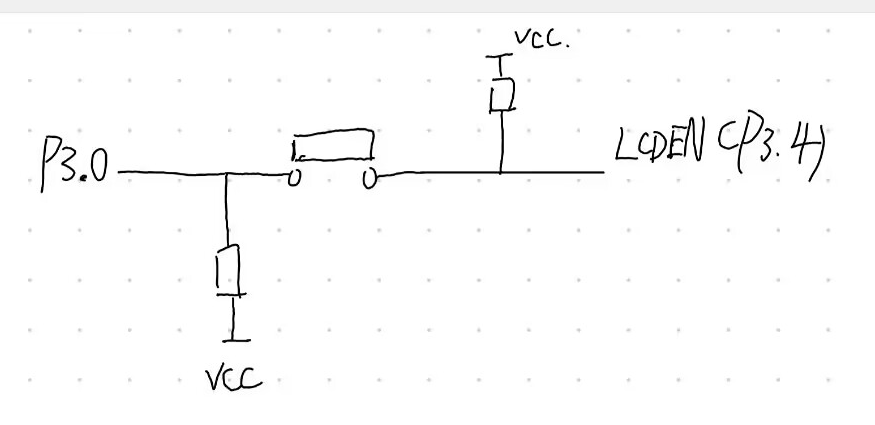 VCC.
P3.0
LCDEN (P3.4)
VCC